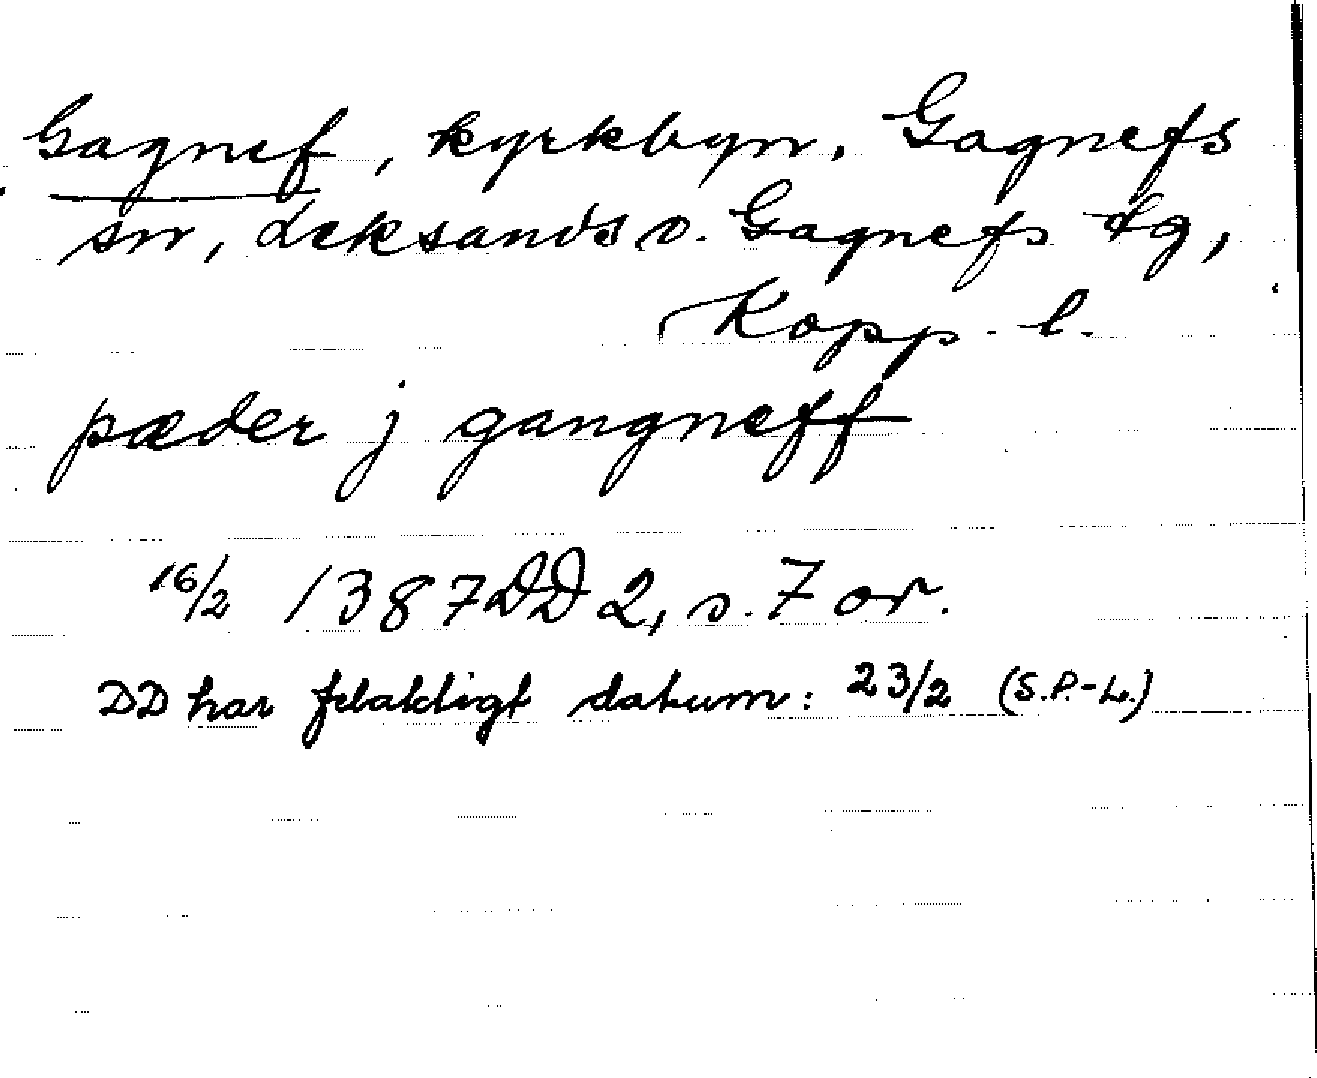 Gagnef, kyrkbyn, Gagnefs
sn, Leksands o. Gagnefs tg,
Kopp. l.
pæder j gangneff
16/2 1387 DD 2, s. 7 or.
DD har felaktigt datum: 23/2 (S.P.-L.)